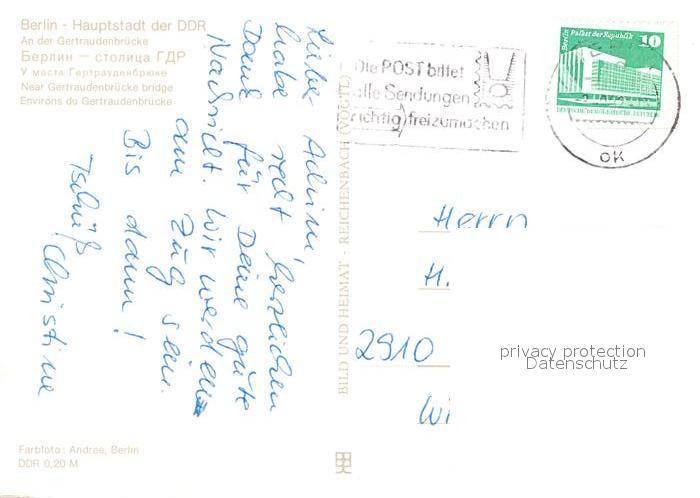 Berlin - Hauptstadt der DDR
An der Gertraudenbrücke
Берлин — столица ГДР
У моста Гертрауденбрюке
Near Gertraudenbrücke bridge
Environs du Gertraudenbrücke
Lieber Achim!
habe recht herzlichen
Dank für Deine gute
Nachricht. Wir werden
am Zug sein.
Bis dann!
Tschüß
Christine
Farbfoto: Andree, Berlin
DDR 0,20 M
BILD UND HEIMAT - REICHENBACH (VOGTL)
Die POST bittet
alle Sendungen
richtig freizumachen
Berlin, Palast der Republik
10
DEUTSCHE DEMOKRATISCHE REPUBLIK
OK
Herrn
H.
2910
Wi
privacy protection
Datenschutz